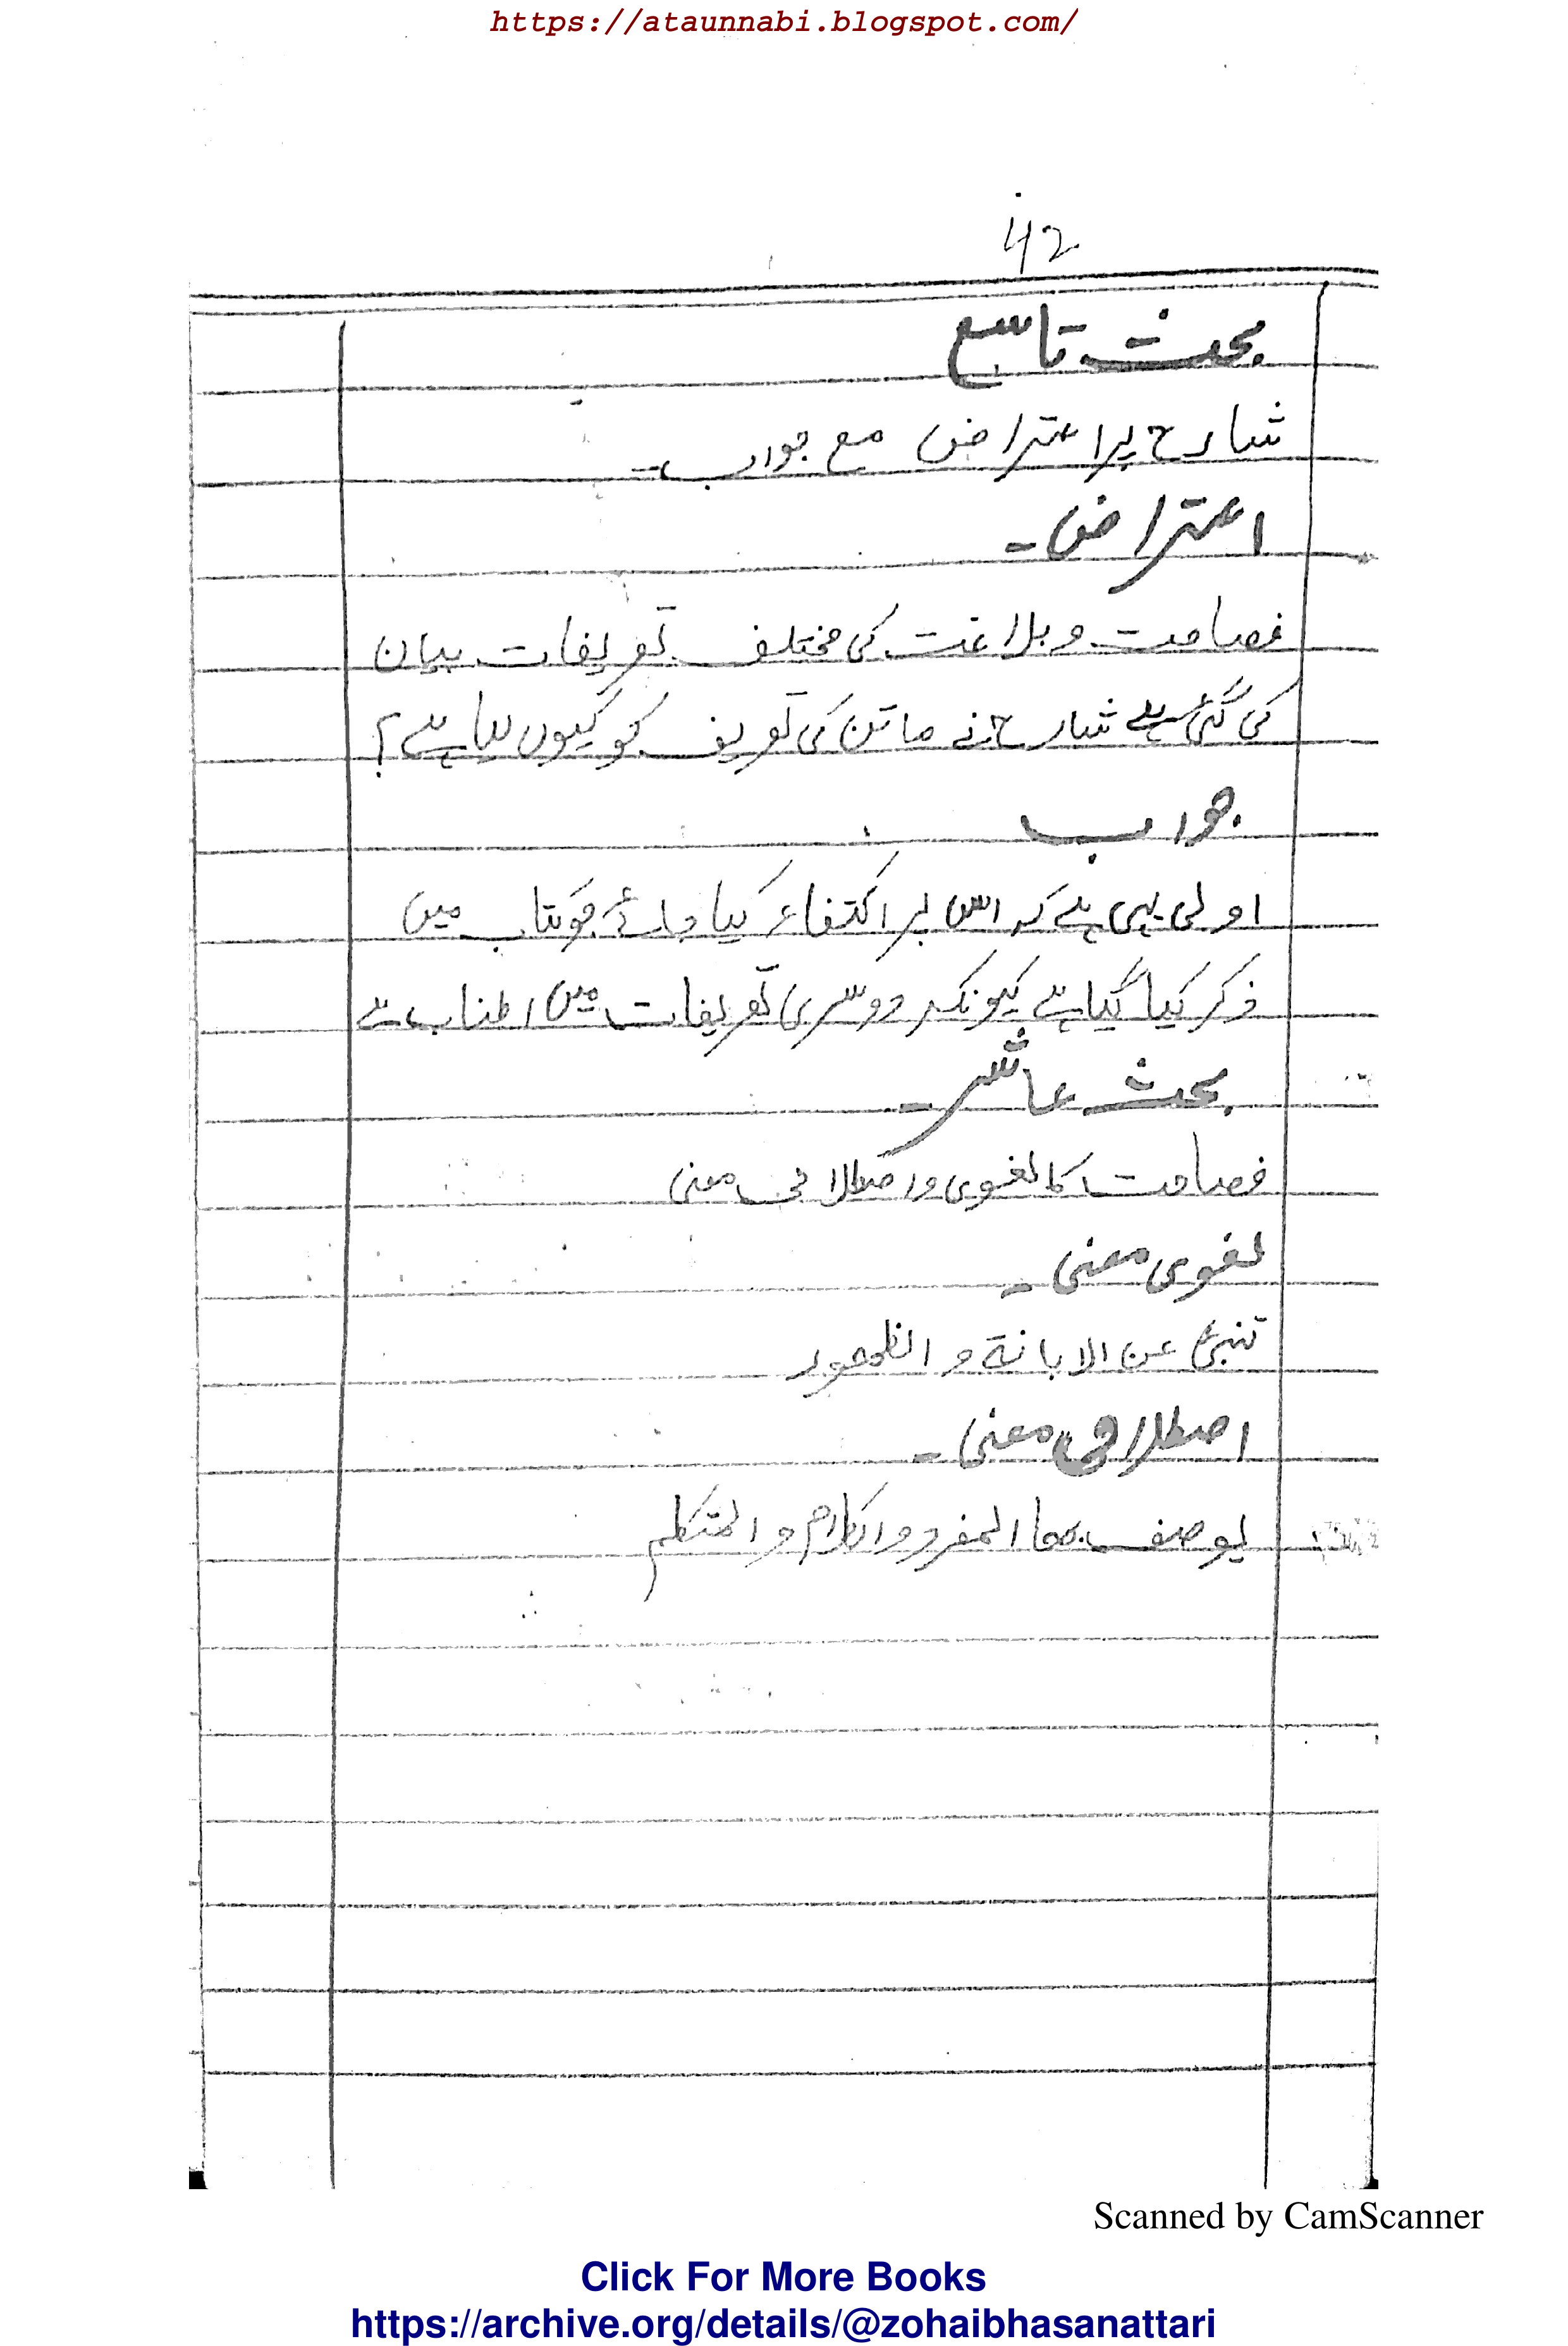 https://ataunnabi.blogspot.com/
42
بحث تاسع
شارح پر اعتراض مع جواب۔
اعتراض۔
فصاحت و بلاغت کی مختلف تعریفات بیان
کی گئی ہے شارح نے ماتن کی تعریف کو کیوں لیا ہے؟
جواب
اولی یہی ہے کہ اس پر اکتفاء کیا جائے جو کتاب میں
ذکر کیا گیا ہے کیونکہ دوسری تعریفات میں اطناب ہے
بحث عاشر۔
فصاحت کا لغوی و اصطلاحی معنی
لغوی معنی۔
تنبئ عن الابانة و الظهور
اصطلاحی معنی۔
یوصف بها المفرد و الکلام و المتکلم
Scanned by CamScanner
Click For More Books
https://archive.org/details/@zohaibhasanattari